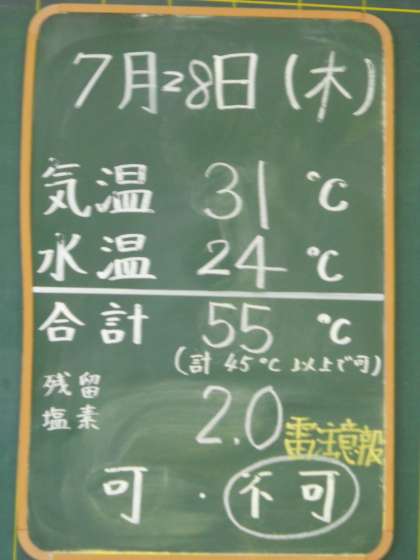 7月28日(木)
気温 31 ℃
水温 24 ℃
合計 55 ℃
(計 45℃ 以上で可)
残留
塩素 2.0
雷注意報
可 ・ 不可